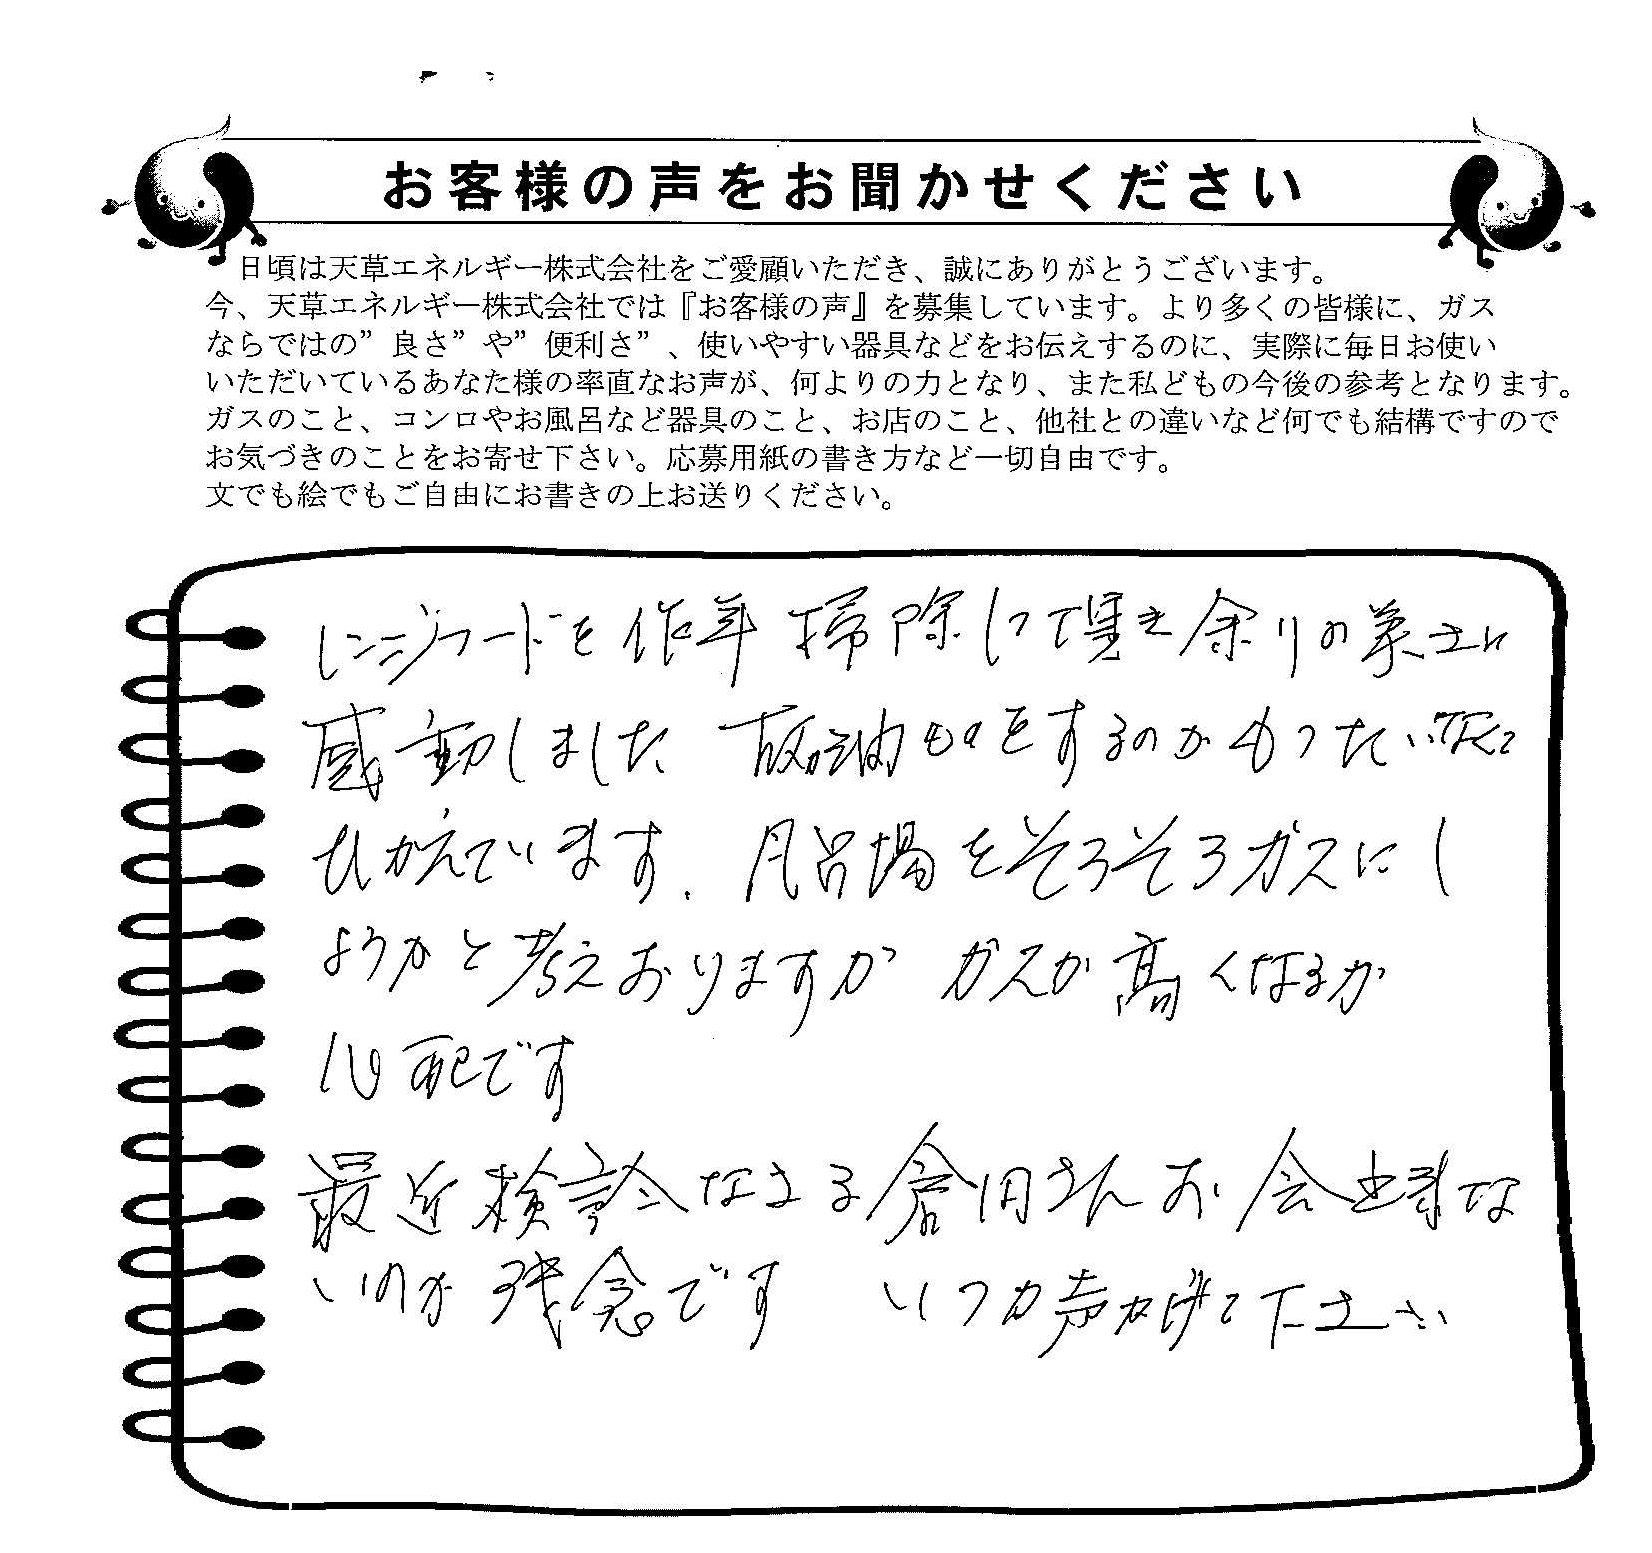 お客様の声をお聞かせください
日頃は天草エネルギー株式会社をご愛顧いただき、誠にありがとうございます。
今、天草エネルギー株式会社では『お客様の声』を募集しています。より多くの皆様に、ガス
ならではの”良さ”や”便利さ”、使いやすい器具などをお伝えするのに、実際に毎日お使い
いただいているあなた様の率直なお声が、何よりの力となり、また私どもの今後の参考となります。
ガスのこと、コンロやお風呂など器具のこと、お店のこと、他社との違いなど何でも結構ですので
お気づきのことをお寄せ下さい。応募用紙の書き方など一切自由です。
文でも絵でもご自由にお書きの上お送りください。
レンジフードを作年掃除して頂き余りの美さに
感動しました 放油ものをするのがもったい無くて
ひかえています. 呂場をそろそろガスにし
ようかと考えおりますが ガスが高くなるが
心配です
最近検診なさる倉田さんお会出来な
いのが残念です いつか声かけて下さい